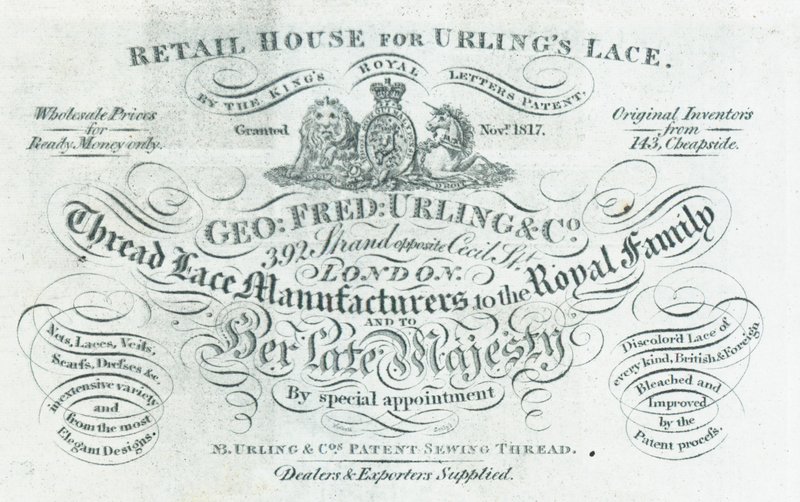 RETAIL HOUSE FOR URLING'S LACE.
BY THE KING'S ROYAL LETTERS PATENT.
Wholesale Prices
for
Ready Money only.
Granted Novr. 1817.
Original Inventors
from
143, Cheapside.
GEO: FRED: URLING & Co.
392 Strand opposite Cecil St.
LONDON.
Thread Lace Manufacturers to the Royal Family
AND TO
Her Late Majesty
By special appointment
Nets, Laces, Veils,
Scarfs, Dresses &c.
in extensive variety
and
from the most
Elegant Designs.
Discolor'd Lace of
every kind, British & Foreign
Bleached and
Improved
by the
Patent process.
NB. URLING & Cos PATENT SEWING THREAD.
Dealers & Exporters Supplied.